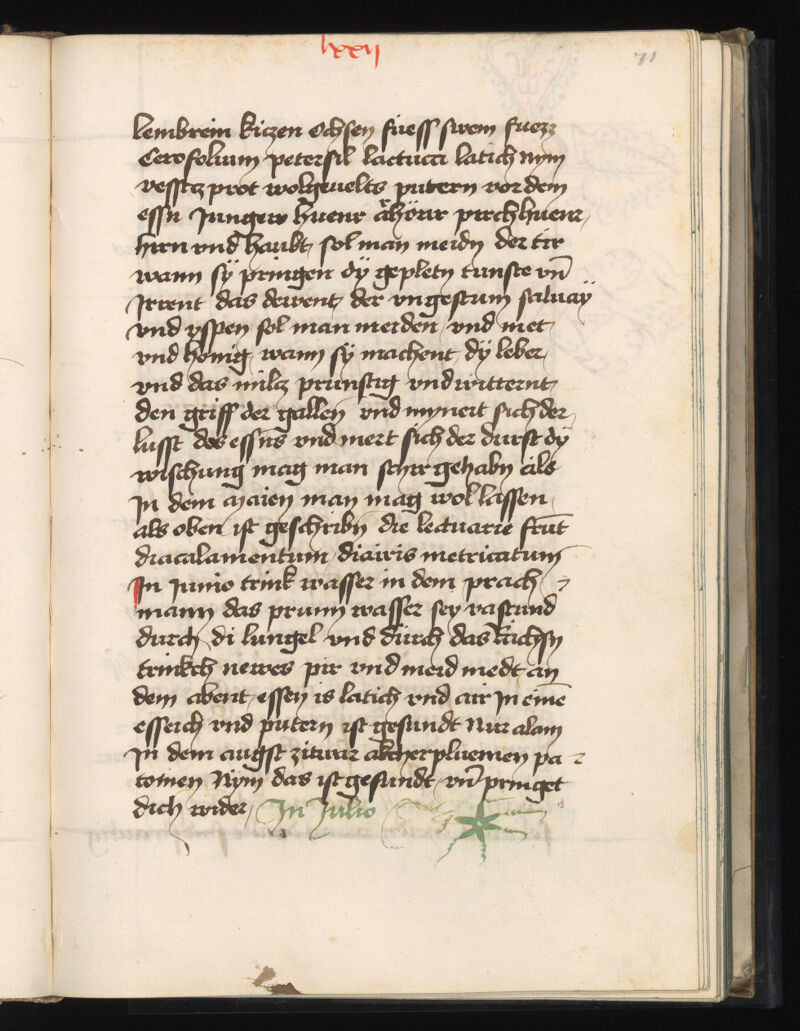 lxxij
71
lembrein kiczen ochsen fuess swein fuezz
Cerofolium petersil lactucci latich nym
vesstcz prot wolgeuelts putern vor dem
essn Junger huenr ähörer prechhuenr
hirn vnd haubt sol man meidn der tir
wann sÿ pringen dÿ gepletn tunste vn̄
Irrent das dewent der vngestum saluaÿ
vnd yspen sol man meiden vnd met
vnd honig wann sÿ machent dÿ leber
vnd das milcz prunstig vnd witternt
den griff der gallen vnd mynert sich der
lusst des essn̄s vnd mert sich der durst dÿ
mischung mag man gehabn als
In dem maien man mag wol lassen
als oben ist geschribn̄ die lectuarie sint
diacalamentum diairis metricatum
In Junio trink wasser in dem prach
mann das prunn wasser sey vastund
durch di lungel vnd durch das
trinkch newes pir vnd meid medt an
dem abent essen is latich vnd air In eine̅
esseich vnd putern ist gesundt Nur alain
In dem augst zitwar pluemen pa
tonien Nym das ist gesundt vn̄ pringet
dich wider In Julio